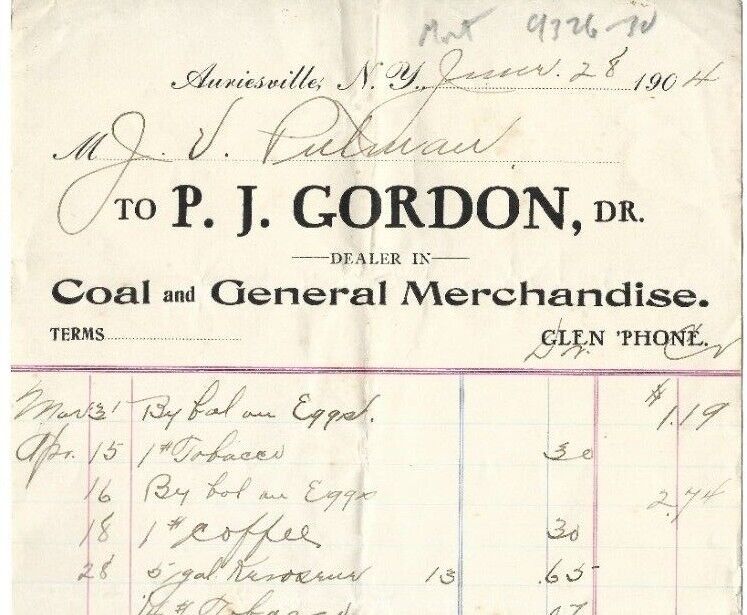 9326-30
Auriesville, N. Y., June 28 1904
M J. V. Putman
TO P. J. GORDON, DR.
DEALER IN
Coal and General Merchandise.
TERMS GLEN 'PHONE.
Dr. Cr
Mar 31 By bal on Eggs. $1.19
Apr. 15 1# Tobacco 30
16 By bal on Eggs 2.74
18 1# coffee 30
28 5 gal Kerosene 13 .65
# Tobacco 07